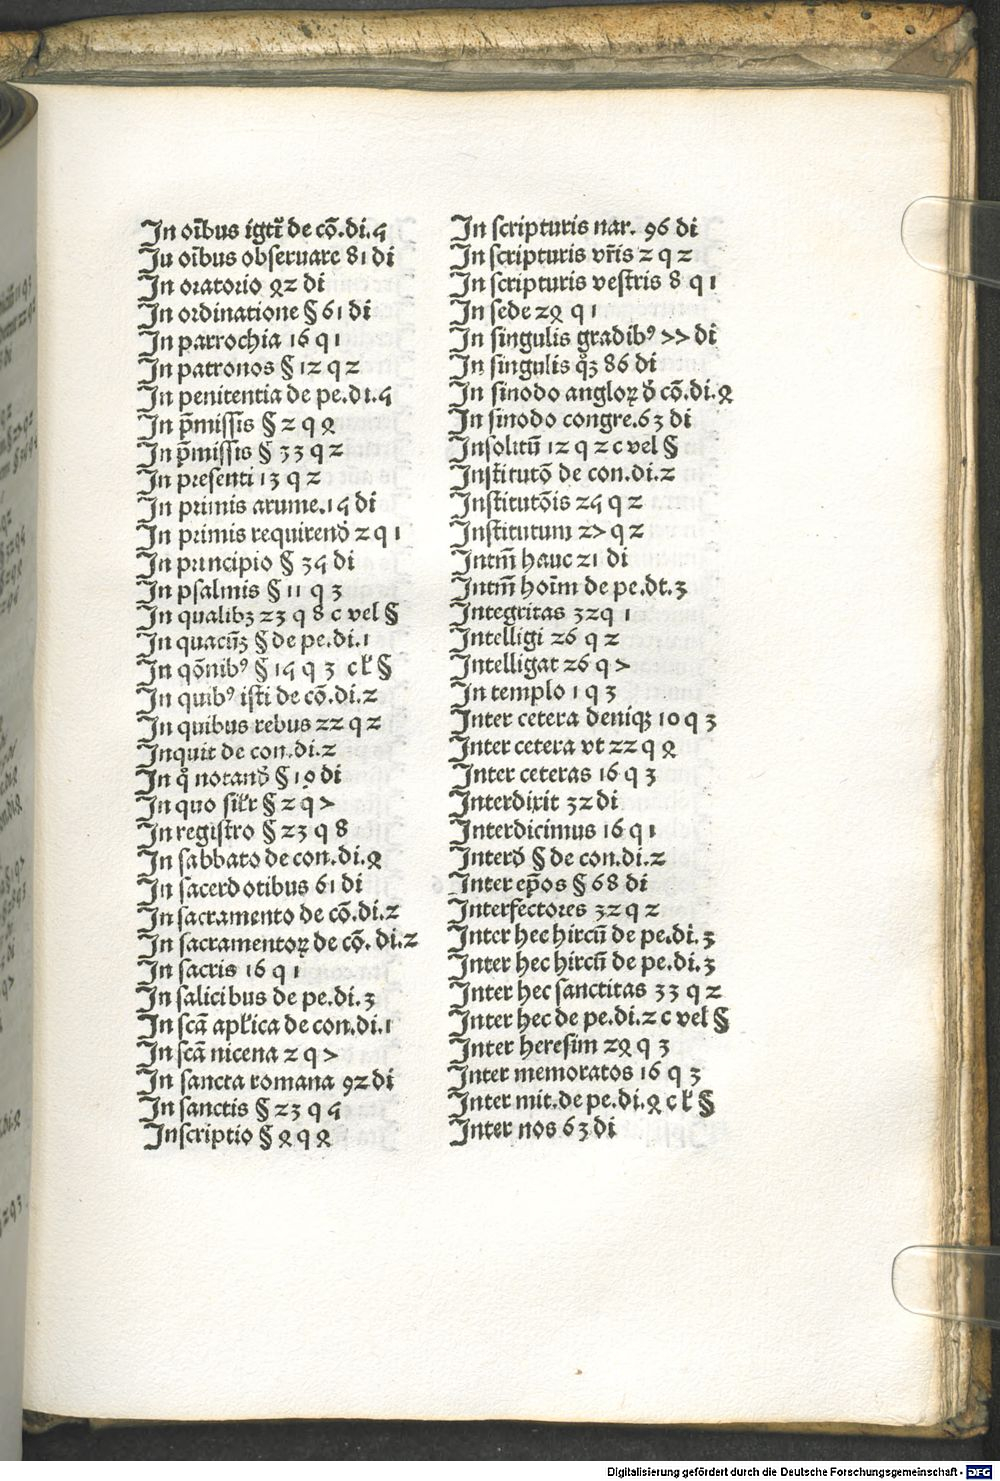 In oībus igtr̄ de cō.di.5
Iu oībus obseruare 81 di
In oratorio 4z di
In ordinatione § 61 di
In parrochia 16 q 1
In patronos § 1z q z
In penitentia de pe.di.5
In p̄missis § z q 4
In p̄missis § 33 q z
In presenti 13 q z
In primis arume.15 di
In primis requirend̓ z q 1
In principio § 35 di
In psalmis § 11 q 3
In qualibꝫ z3 q 8 c vel §
In quacūꝫ § de pe.di.1
In qōnibꝰ § 15 q 3 c ł §
In quibꝰ isti de cō.di.z
In quibus rebus zz q z
Inquit de con.di.z
In qͦ notand̓ § 14 di
In quo siłr § z q 7
In registro § z3 q 8
In sabbato de con.di.4
In sacerdotibus 61 di
In sacramento de cō.di.z
In sacramentoꝝ de cō.di.z
In sacris 16 q 1
In salicibus de pe.di.3
In scā apłica de con.di.1
In scā nicena z q 7
In sancta romana 9z di
In sanctis § z3 q 5
Inscriptio § 4 q 4
In scripturis nar. 96 di
In scripturis vr̄is z q z
In scripturis vestris 8 q 1
In sede z4 q 1
In singulis gradibꝰ 77 di
In singulis qͦꝫ 86 di
In sinodo angloꝝ d̓ cō.di.4
In sinodo congre.63 di
Insolitū 1z q z c vel §
Institutō de con.di.z
Institutōis z5 q z
Institutum z7 q z
Intm̄ hauc z1 di
Intm̄ hoīm de pe.dt.3
Integritas 3zq 1
Intelligi z6 q z
Intelligat z6 q 7
In templo 1 q 3
Inter cetera deniqꝫ 10 q 3
Inter cetera vt zz q 4
Inter ceteras 16 q 3
Interdixit 3z di
Interdicimus 16 q 1
Interd̓ § de con.di.z
Inter ep̄os § 68 di
Interfectores 3z q z
Inter hec hircū de pe.di.3
Inter hec hircū de pe.di.3
Inter hec sanctitas 33 q z
Inter hec de pe.di.z c vel §
Inter heresim z4 q 3
Inter memoratos 16 q 3
Inter mit.de pe.di.4 c ł §
Inter nos 63 di
Digitalisierung gefördert durch die Deutsche Forschungsgemeinschaft - DFG